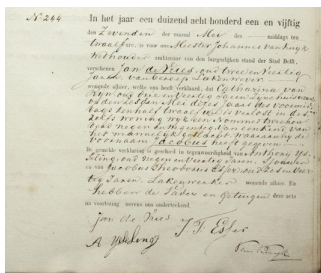 No. 244
In het jaar een duizend acht honderd een en vijftig
den Zevenden der maand Mei des middags ten
twaalf ure, is voor ons Meester Johannes van Kuyk
Wethouder ambtenaar van den burgerlijken stand der Stad Delft,
verschenen Jan de Vries, oud twee en veertig
Jaren, van beroep Lakenwever
wonende alhier, welke ons heeft verklaard, dat Egbertina van
oud en veertig Jaren zijne huisvrouw
op den zesden Mei dezes jaars des voormid
dags ten half twaalf ure is verlost in des
zelfs woning wijk een Nommer
van een kind van
het mannelijk geslacht, waaraan hij de
voornaam Jacobus heeft gegeven
De gemelde verklaring is geschied in tegenwoordigheid van Anthony IJs
seling, oud negen en veertig Jaren,
en van Jacobus Theodorus Esser, oud zes en veer
tig Jaren, Lakenwerker wonende alhier. En
hebben de Vader en Getuigen deze acte
na voorlezing nevens ons onderteekend.
Jan de Vries
J T Esser
A IJsseling
Van Kuyk